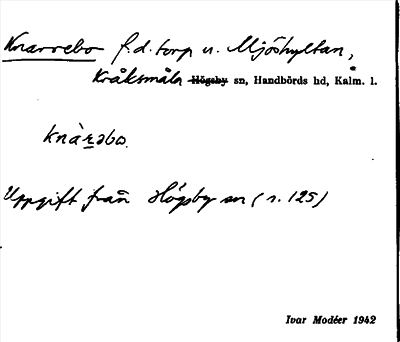 Knarrebo f.d. torp u. Mjöshyltan,
Kråksmåla Högsby sn, Handbörds hd, Kalm. l.
knàrəbo.
Uppgift från Högsby sn (s. 125)
Ivar Modéer 1942